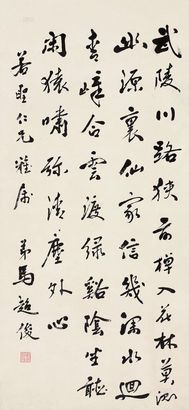 武陵川路狹前棹入花林莫測
幽源裏仙家信幾深水迴
青嶂合雲渡綠谿陰坐聼
閑猿嘯弥清塵外心
若聖仁兄雅屬
弟馬超俊